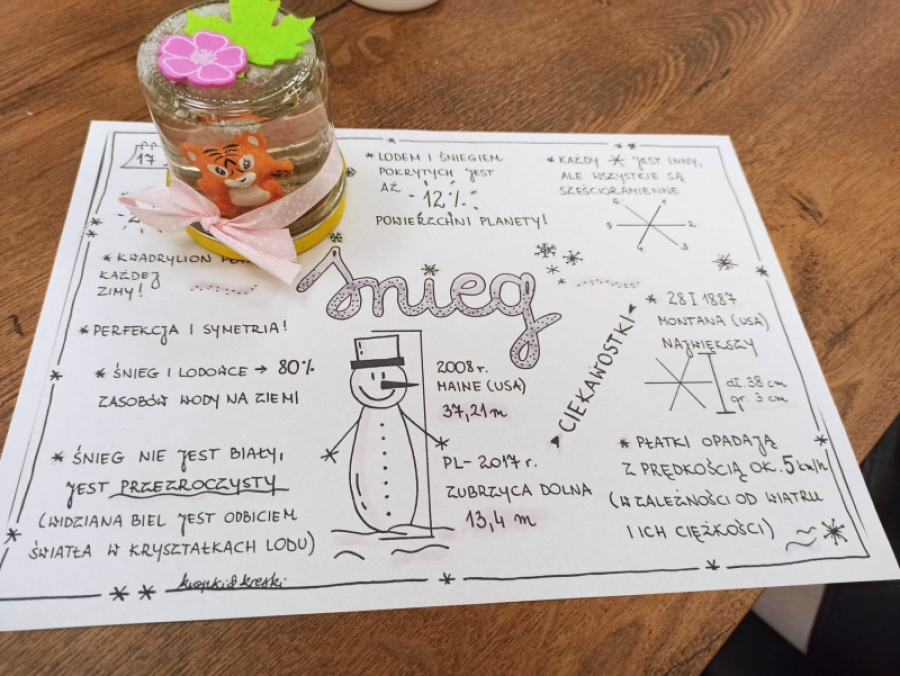 17
* LODEM I ŚNIEGIEM
POKRYTYCH JEST
AŻ 12%
POWIERZCHNI PLANETY!
* KAŻDY * JEST INNY,
ALE WSZYSTKIE SĄ
SZEŚCIORAMIENNE
2
3
5
* KWADRYLION
KAŻDEJ
ZIMY!
Śnieg
* PERFEKCJA I SYMETRIA!
* ŚNIEG I LODOWCE → 80%
ZASOBÓW WODY NA ZIEMI
* ŚNIEG NIE JEST BIAŁY,
JEST PRZEZROCZYSTY
(WIDZIANA BIEL JEST ODBICIEM
ŚWIATŁA W KRYSZTAŁKACH LODU)
kropki&kreski
2008 r.
MAINE (USA)
37,21 m
PL - 2017 r.
ZUBRZYCA DOLNA
13,4 m
CIEKAWOSTKI
* 28 I 1887
MONTANA (USA)
NAJWIĘKSZY
dł. 38 cm
gr. 3 cm
* PŁATKI OPADAJĄ
Z PRĘDKOŚCIĄ OK. 5 km/h
(W ZALEŻNOŚCI OD WIATRU
I ICH CIĘŻKOŚCI)